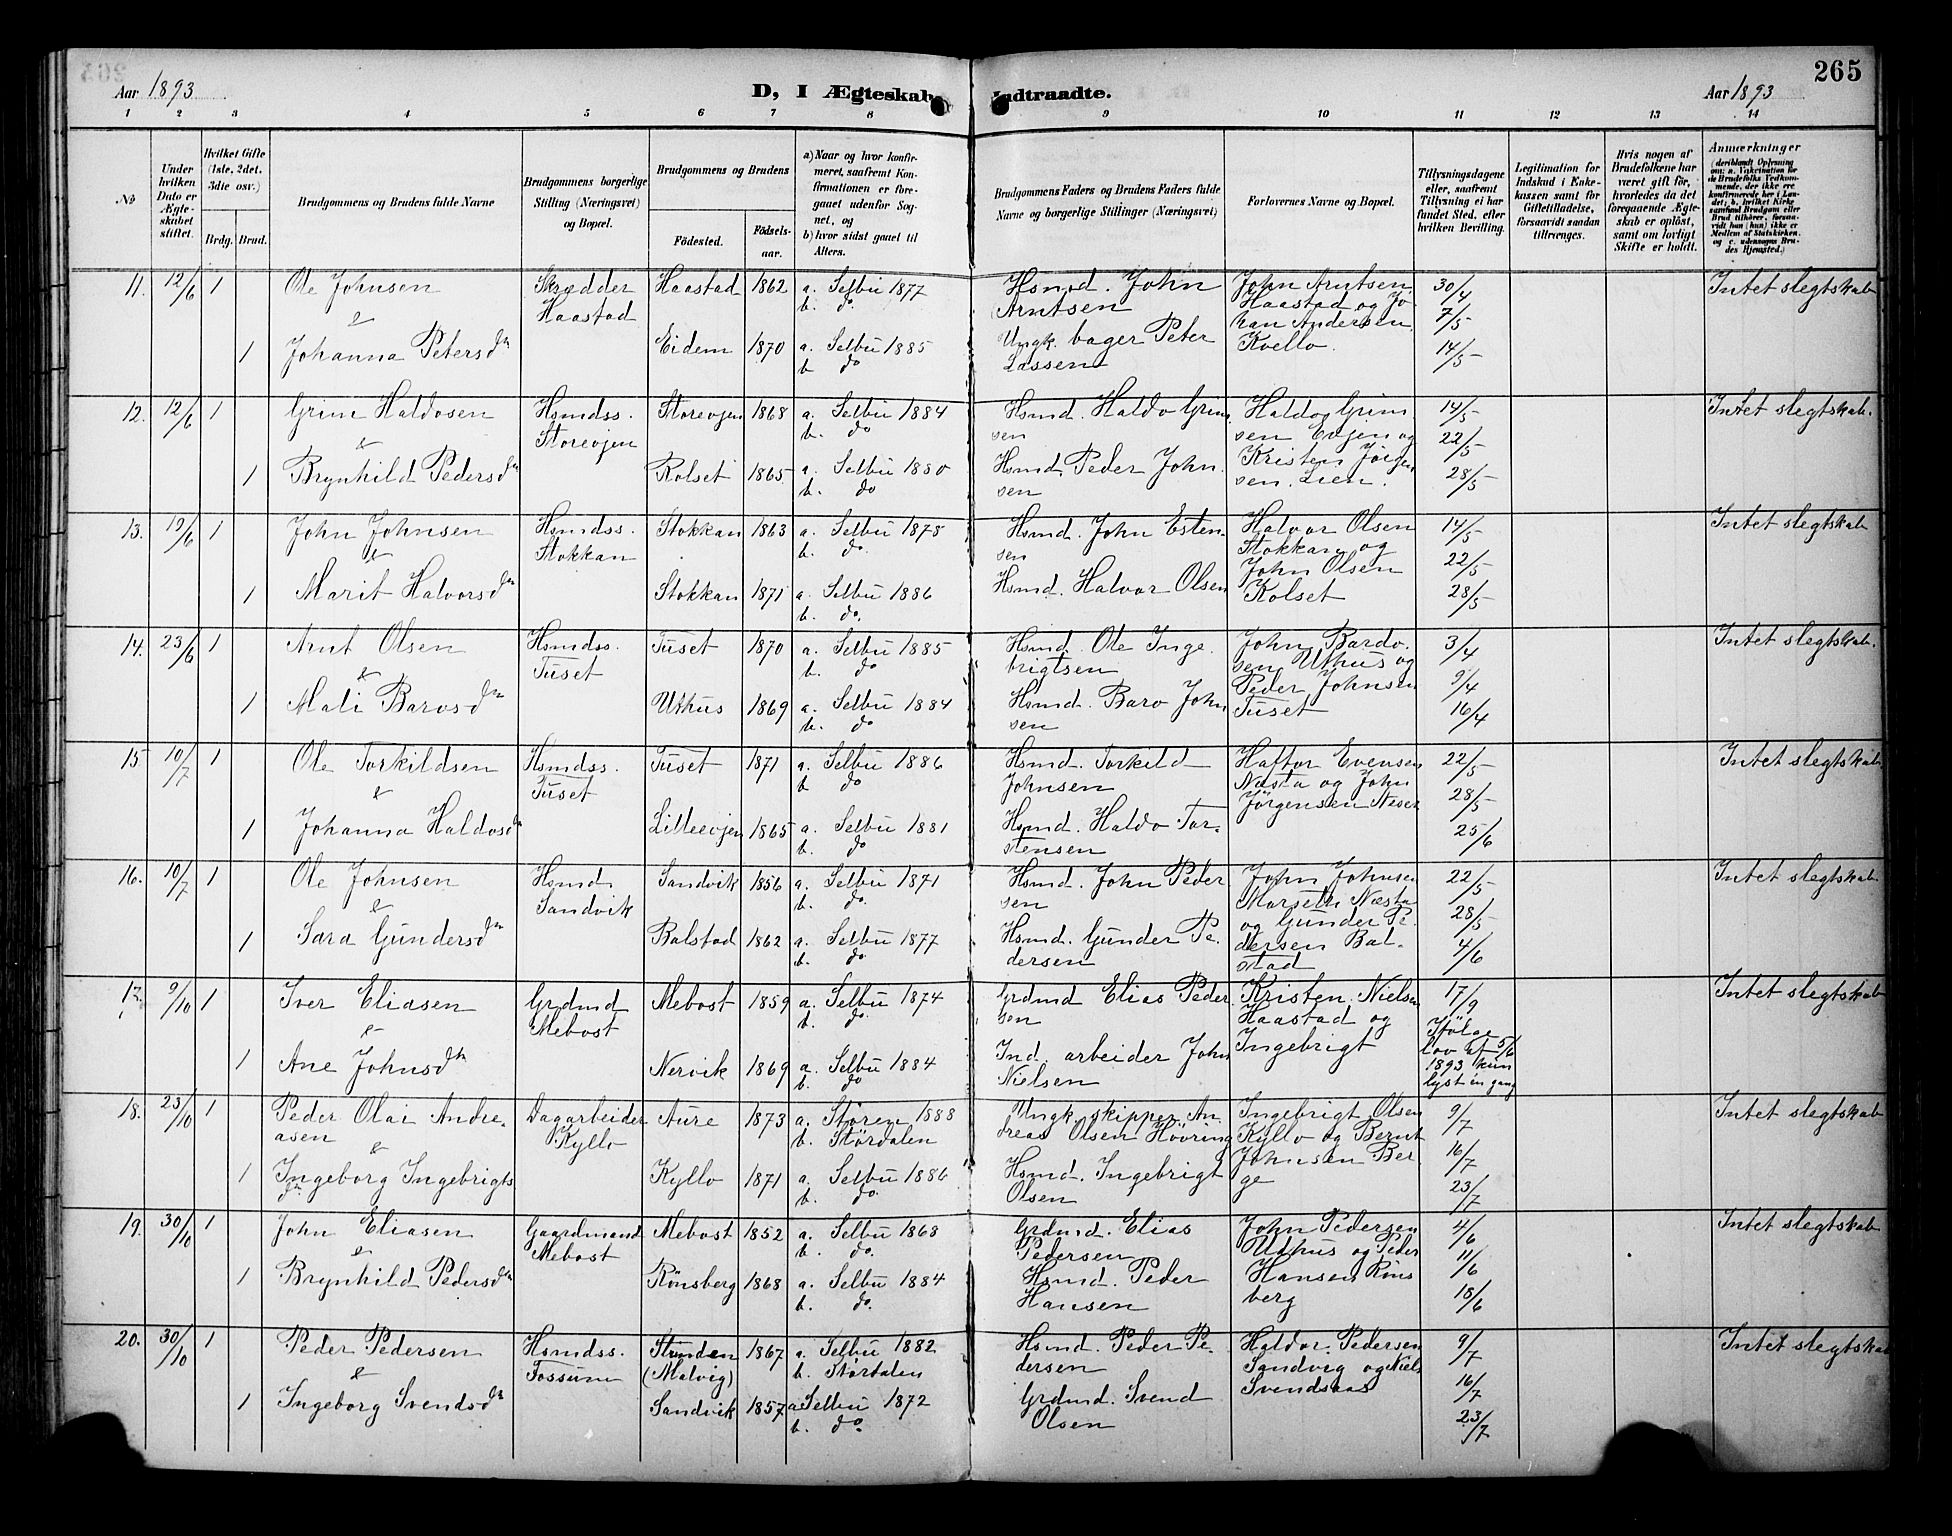 265
Aar 1893
D, I Ægteskab Indtraadte.
Aar 1893
1 2 3 4 5 6 7 8 9 10 11 12 13 14
No
Under hvilken Dato er Ægteskabet stiftet.
Hvilket Gifte (1ste, 2det, 3die osv.)
Brdg. Brud.
Brudgommens og Brudens fulde Navne
Brudgommens borgerlige Stilling (Næringsvei) og Bopæl.
Brudgommens og Brudens
Födested. Födselsaar.
a) Naar og hvor konfirmeret, saafremt Konfirmationen er foregaaet udenfor Sognet, og
b) hvor sidst gaaet til Alters.
Brudgommens Faders og Brudens Faders fulde Navne og borgerlige Stillinger (Næringsvei)
Forlovernes Navne og Bopæl.
Tillysningsdagene eller, saafremt Tillysning ei har fundet Sted, efter hvilken Bevilling.
Legitimation for Indskud i Enkekassen samt for Giftetilladelse, forsaavidt saadan tiltrænges.
Hvis nogen af Brudefolkene har været gift för, hvorledes da det foregaaende Ægteskab er oplöst, samt om lovligt Skifte er holdt.
Anmærkninger
(deriblandt Oplysning om: a. Vakcination for de Brudefolks Vedkommende, der ikke ere konfirmerede her i Landet; b. hvilket Kirkesamfund Brudgom eller Brud tilhörer, forsaavidt han (hun) ikke er Medlem af Statskirken, og c. udensogns Brudes Hjemsted.)
11. 12/6 1 Ole Johnsen Skrædder Haastad Haastad 1862 a. Selbu 1877 b. do. Hsmd. John Arntsen John Arntsen Haastad og Johan Andersen Kvello. 30/4 7/5 14/5 Intet slegtskab
&
1 Johanna Petersdtr Eidem 1870 a. Selbu 1885 b do Ungk. bager Peter Lassen
12. 12/6 1 Grim Haldosen Hsmdss. Storevjen Storevjen 1868 a. Selbu 1884 b. do Hsmd. Haldo Grimsen Haldo Grimsen Evjen og Kristen Jörgensen Lien. 14/5 22/5 28/5 Intet slegtskab.
&
1 Brynhild Pedersdtr Rolset 1865 a. Selbu 1880 b. do Hsmd. Peder Johnsen
13. 19/6 1 John Johnsen Hsmdss. Stokkan Stokkan 1863 a. Selbu 1878 b. do. Hsmd. John Estensen Halvor Olsen Stokkan og John Olsen Kolset 14/5 22/5 28/5 Intet slegtskab
&
1 Marit Halvorsdtr Stokkan 1871 a. Selbu 1886 b. do. Hsmd. Halvor Olsen
14. 23/6 1 Arnt Olsen Hsmdss. Tuset Tuset 1870 a. Selbu 1885 b. do Hsmd. Ole Ingebrigtsen John Bardosen Uthus og Peder Johnsen Tuset 3/4 9/4 16/4 Intet slegtskab.
&
1 Mali Barosdtr Uthus 1869 a. Selbu 1884 b. do Hsmd. Baro Johnsen
15 10/7 1 Ole Torkildsen Hsmdss. Tuset Tuset 1871 a. Selbu 1886 b do Hsmd. Torkild Johnsen Haftor Evensen Næsta og John Jörgensen Neset 22/5 28/5 25/6 Intet slegtskab.
&
1 Johanna Haldosdtr Lilleevjen 1865 a. Selbu 1881 b. do Hsmd. Haldo Torstensen
16. 10/7 1 Ole Johnsen Hsmd Sandvik Sandvik 1856 a. Selbu 1871 b. do. Hsmd. John Pedersen John Johnsen Morseth Næsta og Gunder Pedersen Balstad 22/5 28/5 4/6 Intet slegtskab
&
1 Sara Gundersdtr Balstad 1862 a. Selbu 1877 b. do Hsmd. Gunder Pedersen
17. 9/10 1 Iver Eliasen Grdmd Mebost Mebost 1859 a. Selbu 1874 b. do. Grdmd Elias Pedersen Kristen Nielsen Haastad og Ingebrigt 17/9 Ifölge lov af 5/6 1893 kun lyst én gang Intet slegtskab
&
1 Ane Johnsdtr Nervik 1869 a. Selbu 1884 b. do Ind. arbeider John Nielsen
18. 23/10 1 Peder Olai Andreasen Dagarbeider Kyllo Aure 1873 a. Stören 1888 b. Stördalen Ungk. skipper Andreas Olsen Hövring Ingebrigt Olsen Kyllo og Bernt Johnsen Berge 9/7 16/7 23/7 Intet slegtskab
&
1 Ingeborg Ingebrigtsdtr Kyllo 1871 a. Selbu 1886 b. do. Hsmd. Ingebrigt Olsen
19. 30/10 1 John Eliasen Gaardmand Mebost Mebost 1852 a. Selbu 1868 b. do. Grdmd. Elias Pedersen John Pedersen Uthus og Peder Hansen Rönsberg 4/6 11/6 18/6 Intet slegtskab
&
1 Brynhild Pedersdtr Rönsberg 1868 a. Selbu 1884 b. do. Hsmd. Peder Hansen
20. 30/10 1 Peder Pedersen Hsmdss. Fossum (Malvig) 1867 a. Selbu 1882 b. Stördalen Hsmd. Peder Pedersen Haldor Pedersen Sandvig og Niels Svendsaas 9/7 16/7 23/7 Intet slegtskab
&
1 Ingeborg Svendsdtr Sandvik 1857 a Selbu 1872 b. do. Grdmd. Svend Olsen